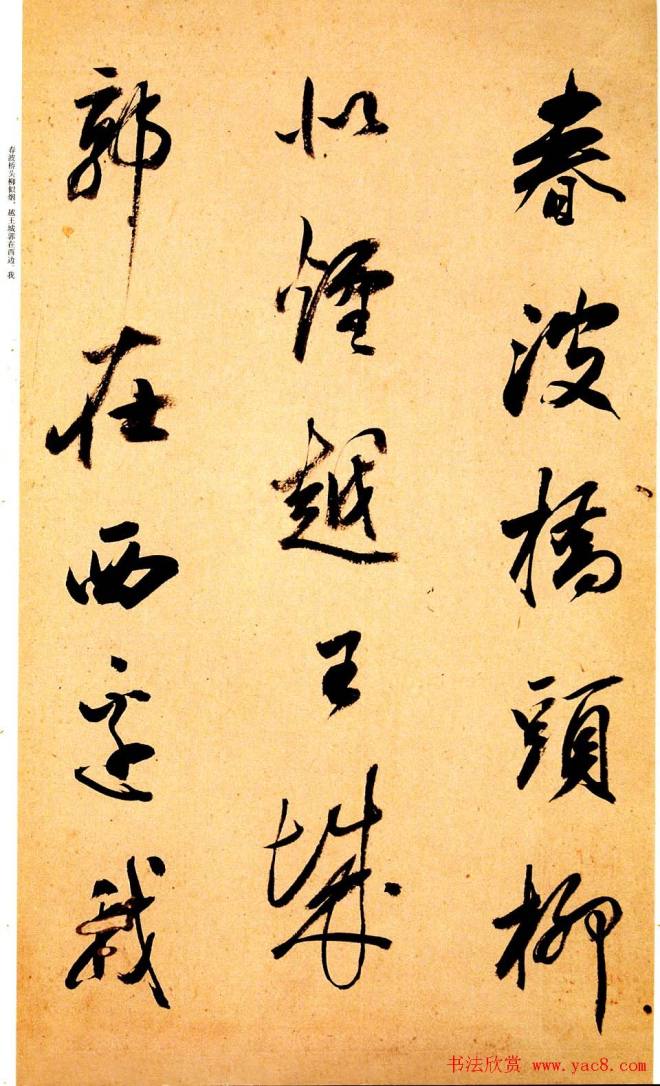 春波橋頭柳
似煙越王城
郭在西邊我
春波桥头柳似烟，越王城郭在西边 我
书法欣赏 www.yac8.com